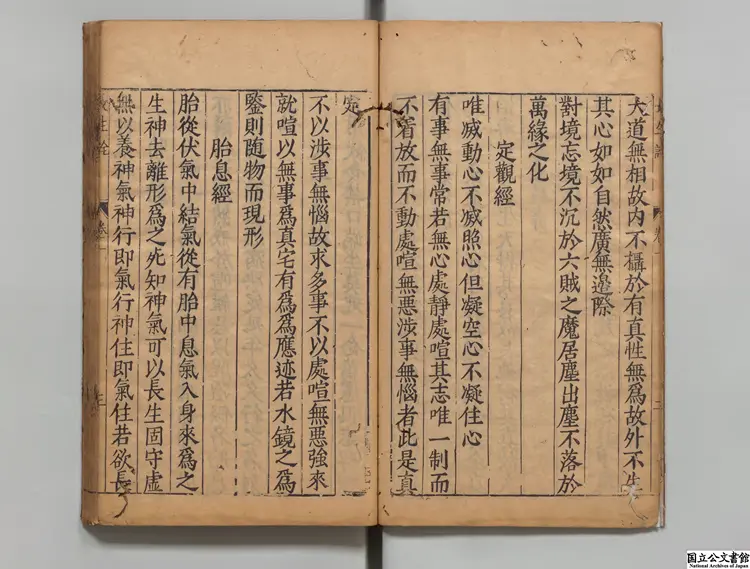 大道無相故內不攝於有真性無爲故外不生
其心如如自然廣無邊際
對境忘境不沉於六賊之魔居塵出塵不落於
萬緣之化
定觀經
唯滅動心不滅照心但凝空心不凝住心
有事無事常若無心處靜處喧其志唯一制而
不着放而不動處喧無惡涉事無惱者此是真
定
不以涉事無惱故求多事不以處喧無惡強來
就喧以無事爲真宅有爲爲應迹若水鏡之爲
鑒則随物而現形
胎息經
胎從伏氣中結氣從有胎中息氣入身來爲之
生神去離形爲之死知神氣可以長生固守虛
無以養神氣神行即氣行神住即氣住若欲長
国立公文書館
National Archives of Japan